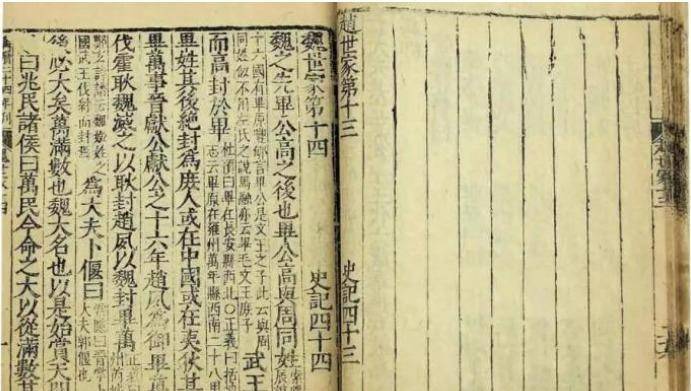 趙世家第十三 史記四十三
魏世家第十四 史記四十四
魏之先畢公高之後也畢公高與周同姓
十六國有畢原豐郇言畢公是文王之子此云與周
同姓似不用左氏之說馬融亦云畢毛文王庶子
武王
而高封於畢
杜預曰畢在長安縣西北○正義曰括地
志云畢原在雍州萬年縣西南二十八里
畢姓其後絕封為庶人或在中國或在夷狄其
畢萬事晉獻公獻公之十六年趙夙為御畢萬
伐霍耿魏滅之以耿封趙夙以魏封畢萬
國武王伐紂而封焉
為大夫卜偃曰
大夫郭偃也
後必大矣萬滿數也魏大名也以是始賞天開
曰兆民諸侯曰萬民今命之大以從滿數其
二十四年刊